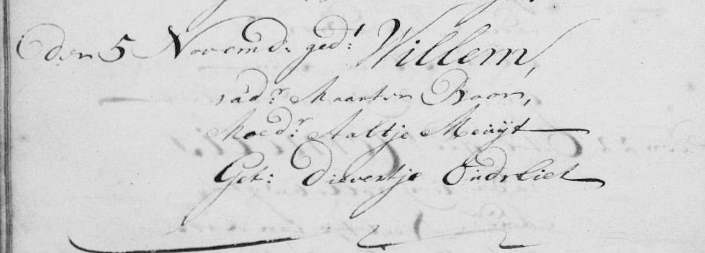 den 5 Novemb. ged:t Willem,
vad:r Maarten Boon,
Moed:r Aaltje Meuijt
Get: Dievertje Oudvliet